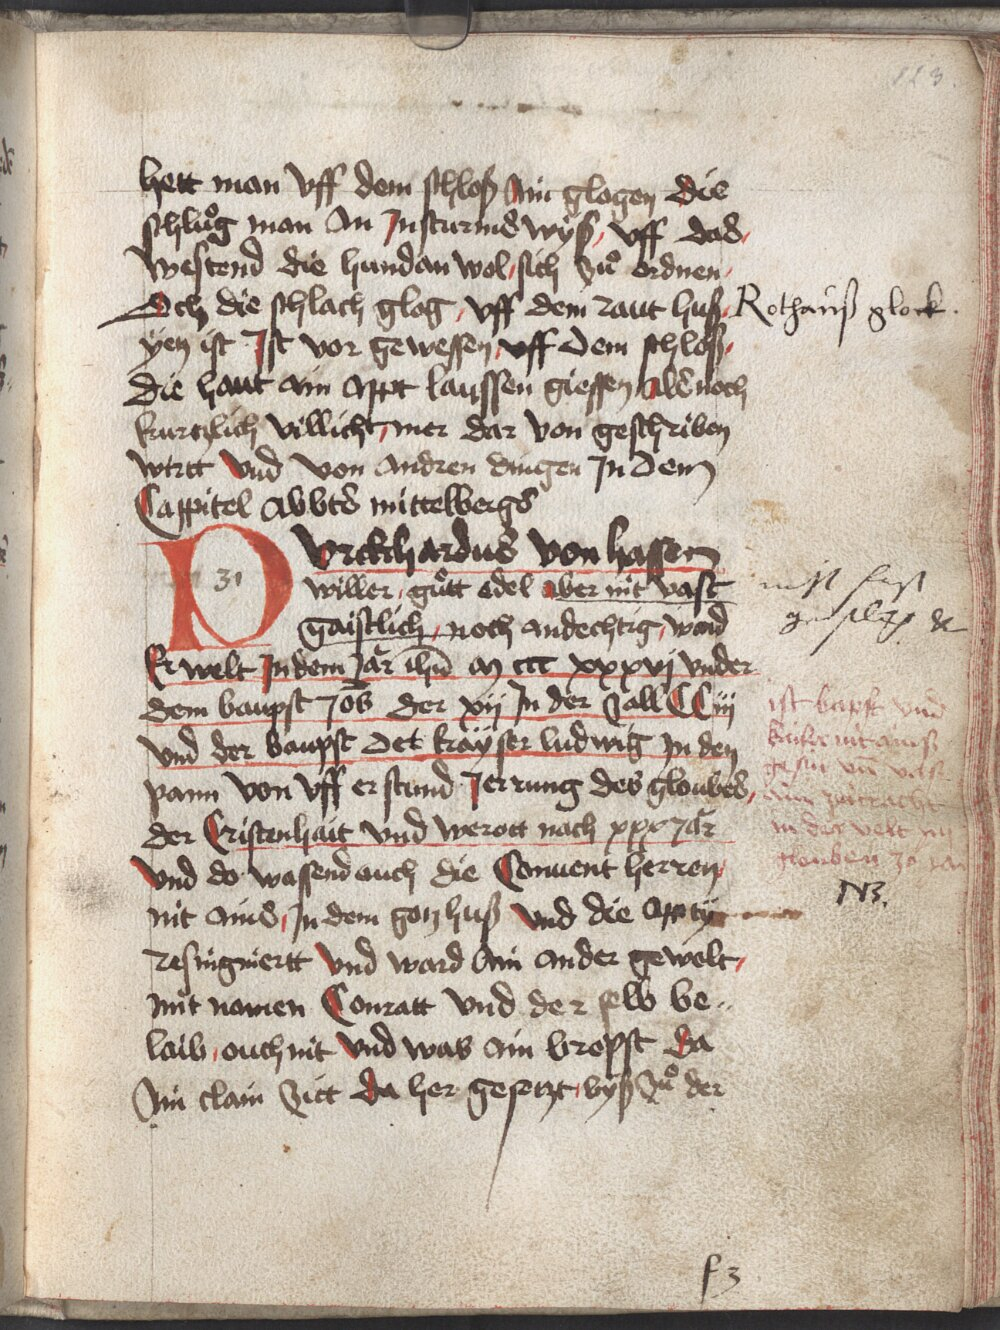 123.
hett man vff dem schloß Ain glogen die
schlůg man An In sturmß wyß, vff das,
westend die hundan wol, sich zů ordnen,
Och die schlach glog, vff dem raut huß,
Rothauß glock.
yez ist Ist vor gewessen, vff dem schloß,
die haut ain Appt laussen giessen Als noch
kurczlich villicht, mer dar von geschriben
wirtt vnd von andren dingen In dem
Cappitel Abbts mittelbergs
31
Burckhardus von hassen
willer, gůtt edel Aber nit vast
gaistlich, noch andechtig, ward
nit fast
Er welt In dem Jăr m ccc xxxvj vnder
dem baupst der xij In der zall CCiij
vnd der baupst Det kayser ludwig In den
pann von vff erstund Jerrung des gloubes,
der Cristenhait vnd werott nach xxx Jăr
ist bapst vnd
in der welt
glauben 30 jar
vnd do wassend auch die Conuent herren,
N3.
nit ains, In dem gotzhuß vnd die Appty
resingniertt vnd ward Ain ander gewelt,
mit namen Conratt vnd der selb be-
laib, ouch nit vnd was ain bropst da
Ain clain zitt da her gesetzt, byß zů der
f3